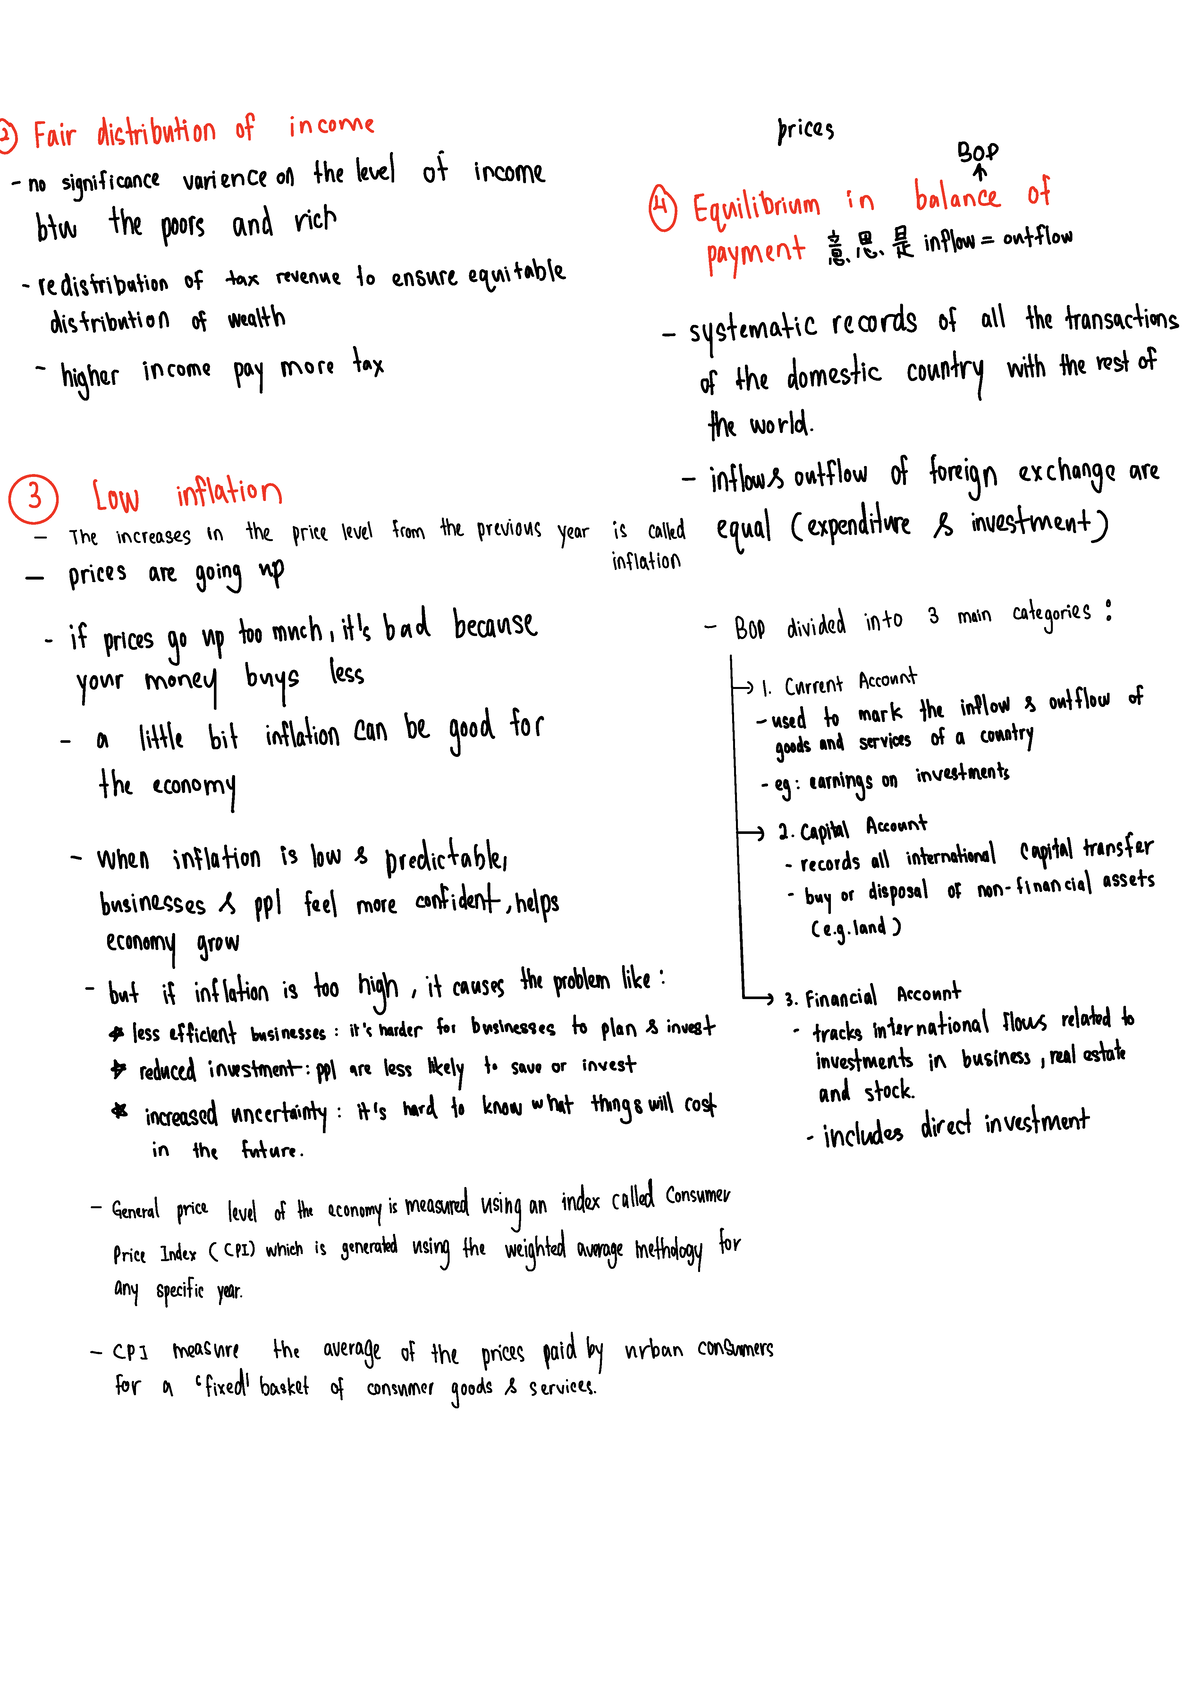 ② Fair distribution of income
- no significance varience on the level of income
btw the poors and rich
- redistribution of tax revenue to ensure equitable
distribution of wealth
- higher income pay more tax
③ Low inflation
- The increases in the price level from the previous year is called
inflation
- prices are going up
- if prices go up too much, it's bad because
your money buys less
- a little bit inflation can be good for
the economy
- When inflation is low & predictable,
businesses & ppl feel more confident, helps
economy grow
- but if inflation is too high, it causes the problem like:
* less efficient businesses: it's harder for businesses to plan & invest
* reduced investment: ppl are less likely to save or invest
* increased uncertainty: it's hard to know what things will cost
in the future.
- General price level of the economy is measured using an index called Consumer
Price Index (CPI) which is generated using the weighted average methology for
any specific year.
- CPI measure the average of the prices paid by urban consumers
for a 'fixed' basket of consumer goods & services.
prices
BOP
④ Equilibrium in balance of
payment 意思是 inflow = outflow
- systematic records of all the transactions
of the domestic country with the rest of
the world.
- inflow & outflow of foreign exchange are
equal (expenditure & investment)
- BOP divided into 3 main categories:
→ 1. Current Account
- used to mark the inflow & outflow of
goods and services of a country
- eg: earnings on investments
→ 2. Capital Account
- records all international capital transfer
- buy or disposal of non-financial assets
(e.g. land)
→ 3. Financial Account
- tracks international flows related to
investments in business, real estate
and stock.
- includes direct investment